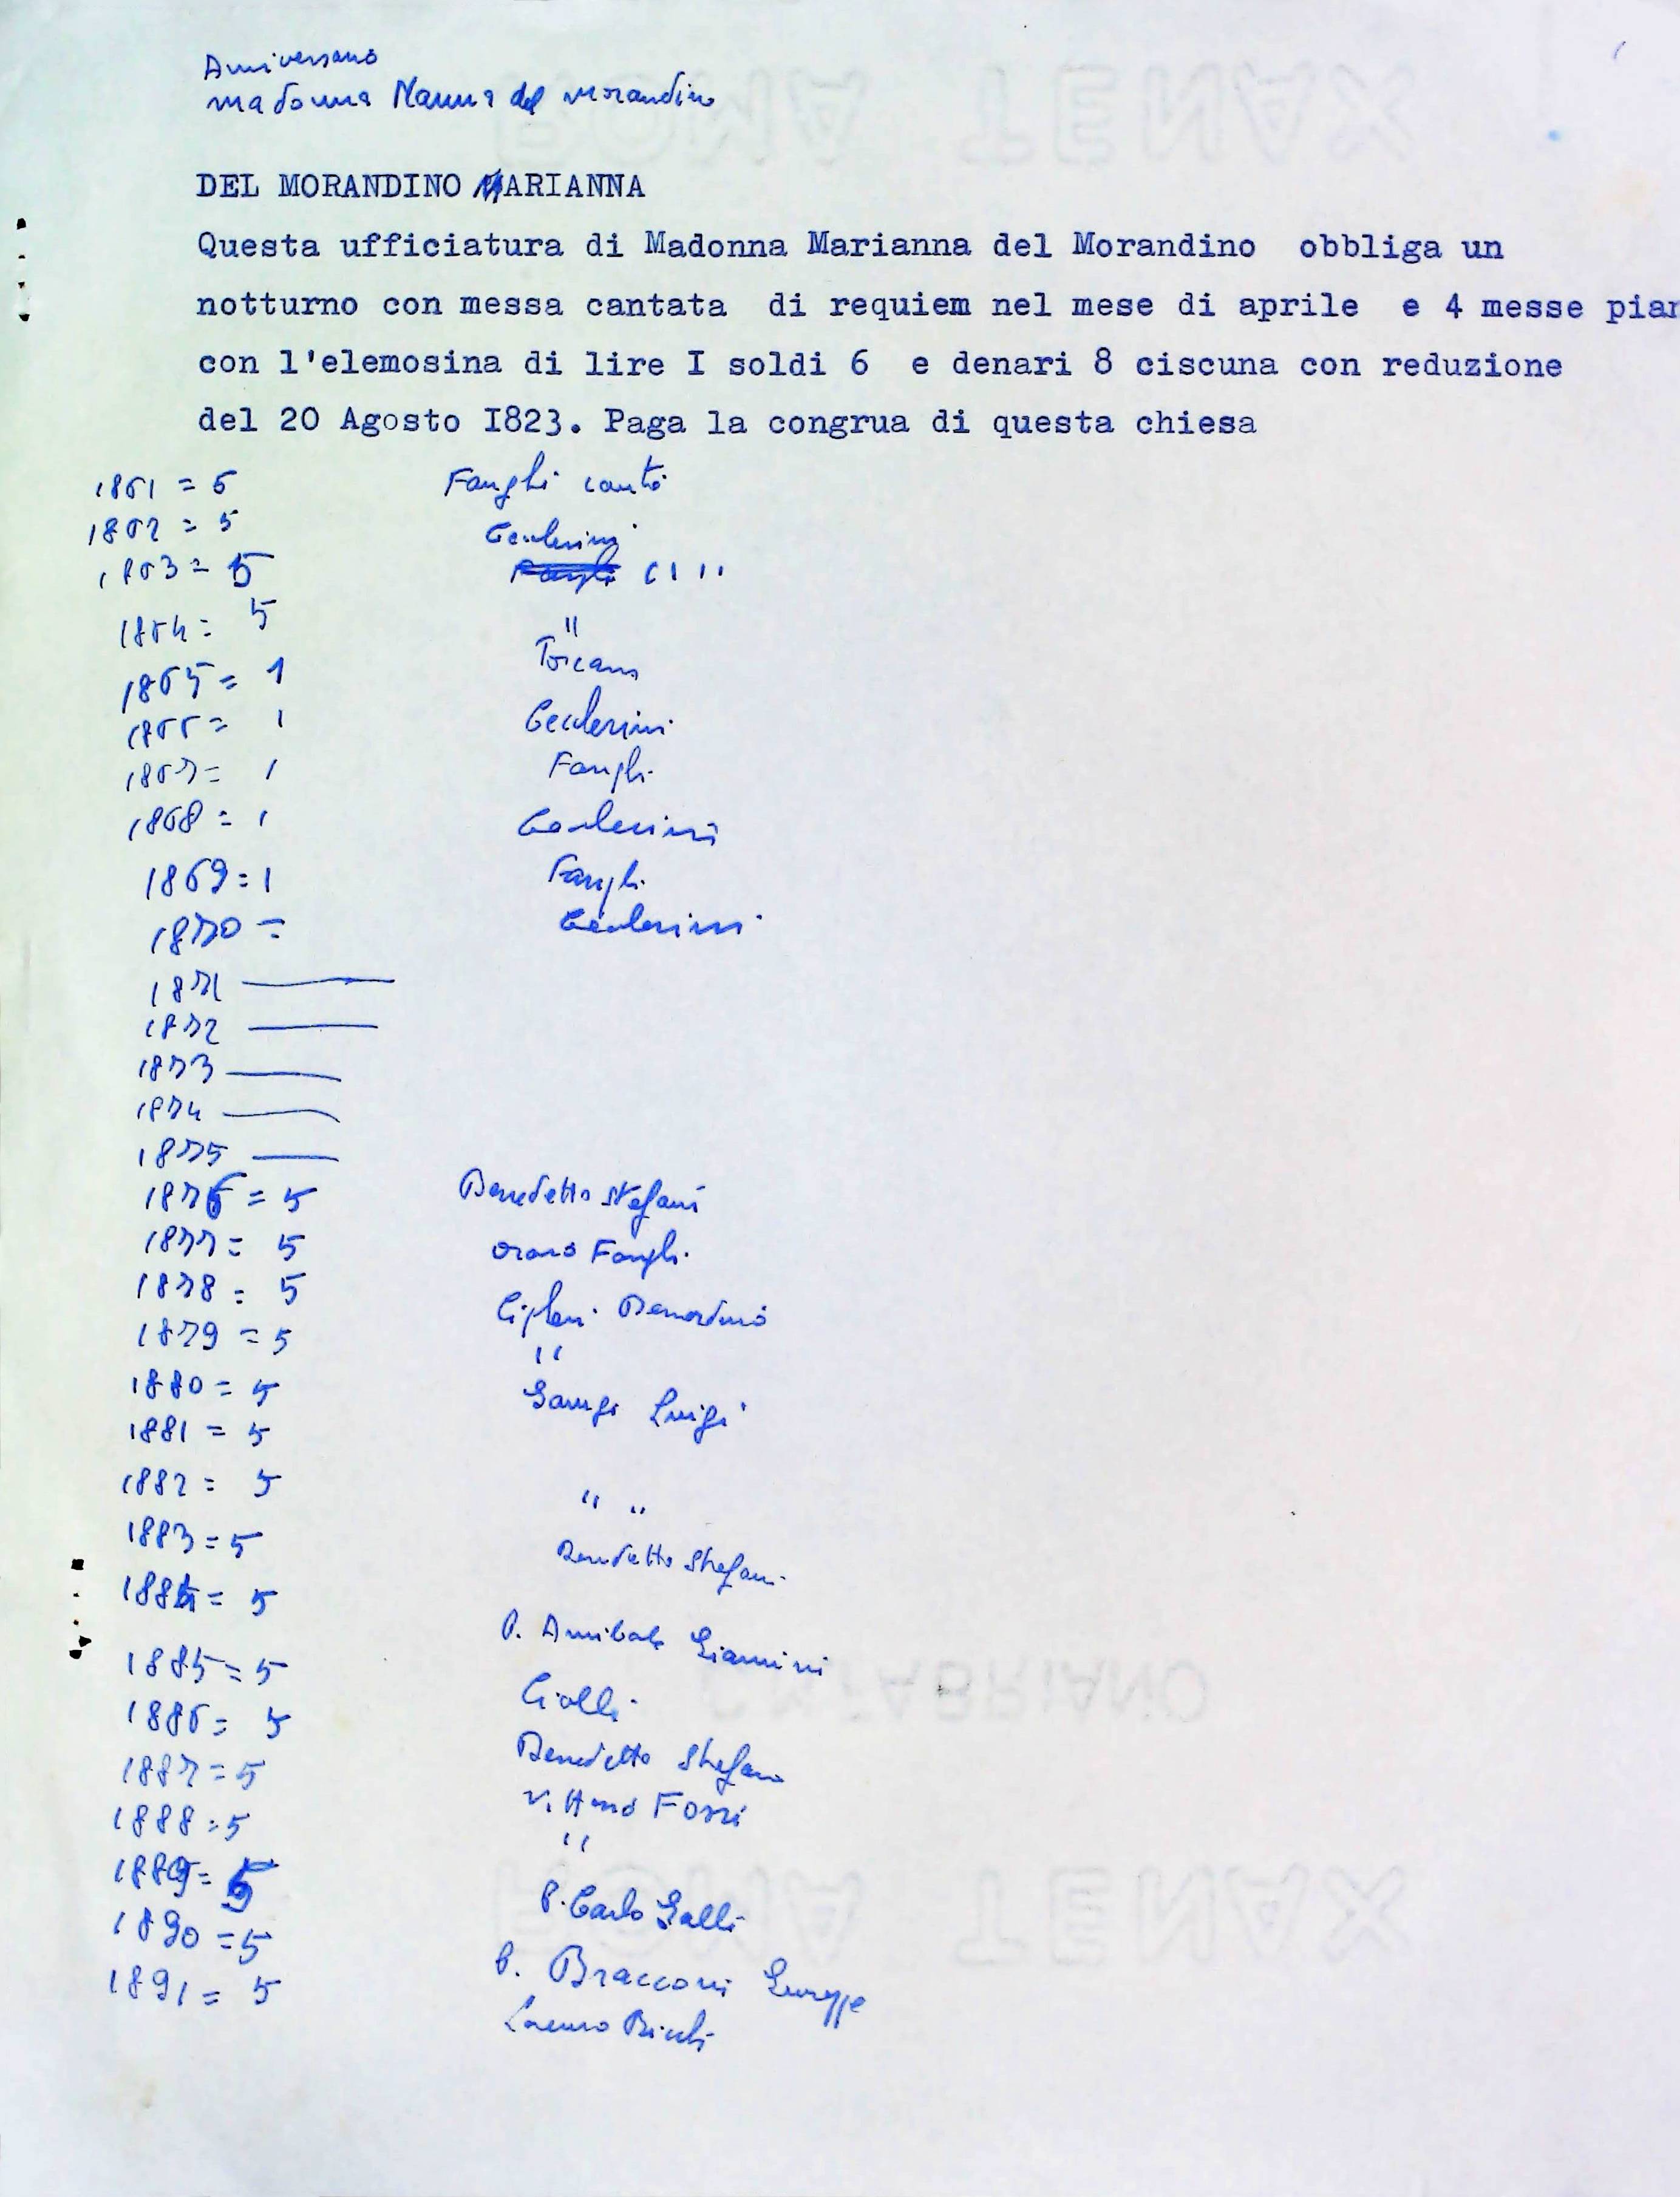 Anniversario
madonna Nanna del Morandino
DEL MORANDINO MARIANNA
Questa ufficiatura di Madonna Marianna del Morandino obbliga un
notturno con messa cantata di requiem nel mese di aprile e 4 messe pian
con l'elemosina di lire I soldi 6 e denari 8 ciscuna con reduzione
del 20 Agosto I823. Paga la congrua di questa chiesa
1861 = 5 Fanghi cantò
1862 = 5
1863 = 5 " "
1864 = 5 "
1865 = 1 Toscano
1866 = 1
1867 = 1 Fanghi
1868 = 1
1869 = 1 Fanghi
1870 =
1871 —
1872 —
1873 —
1874 —
1875 —
1876 = 5 Benedetto Stefani
1877 = 5 Fanghi
1878 = 5
1879 = 5 "
1880 = 5 Luigi
1881 = 5
1882 = 5 " "
1883 = 5 Benedetto Stefani
1884 = 5
P. Annibale Giannini
1885 = 5
1886 = 5
1887 = 5 Benedetto Stefani
1888 = 5 Vittorio Fossi
"
1889 = 5
P. Carlo Galli
1890 = 5
1891 = 5 P. Bracconi Giuseppe
Lorenzo
ROMA TENAX
C.M. FABRIANO
ROMA TENAX